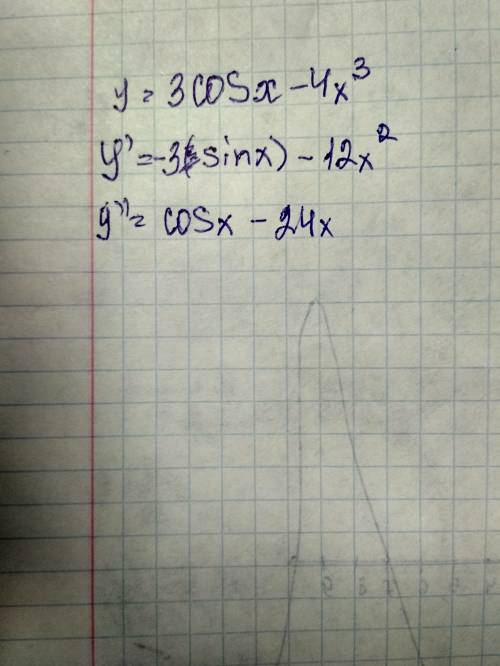 y = 3cosx - 4x³
y' = -3(sinx) - 12x²
y'' = cosx - 24x